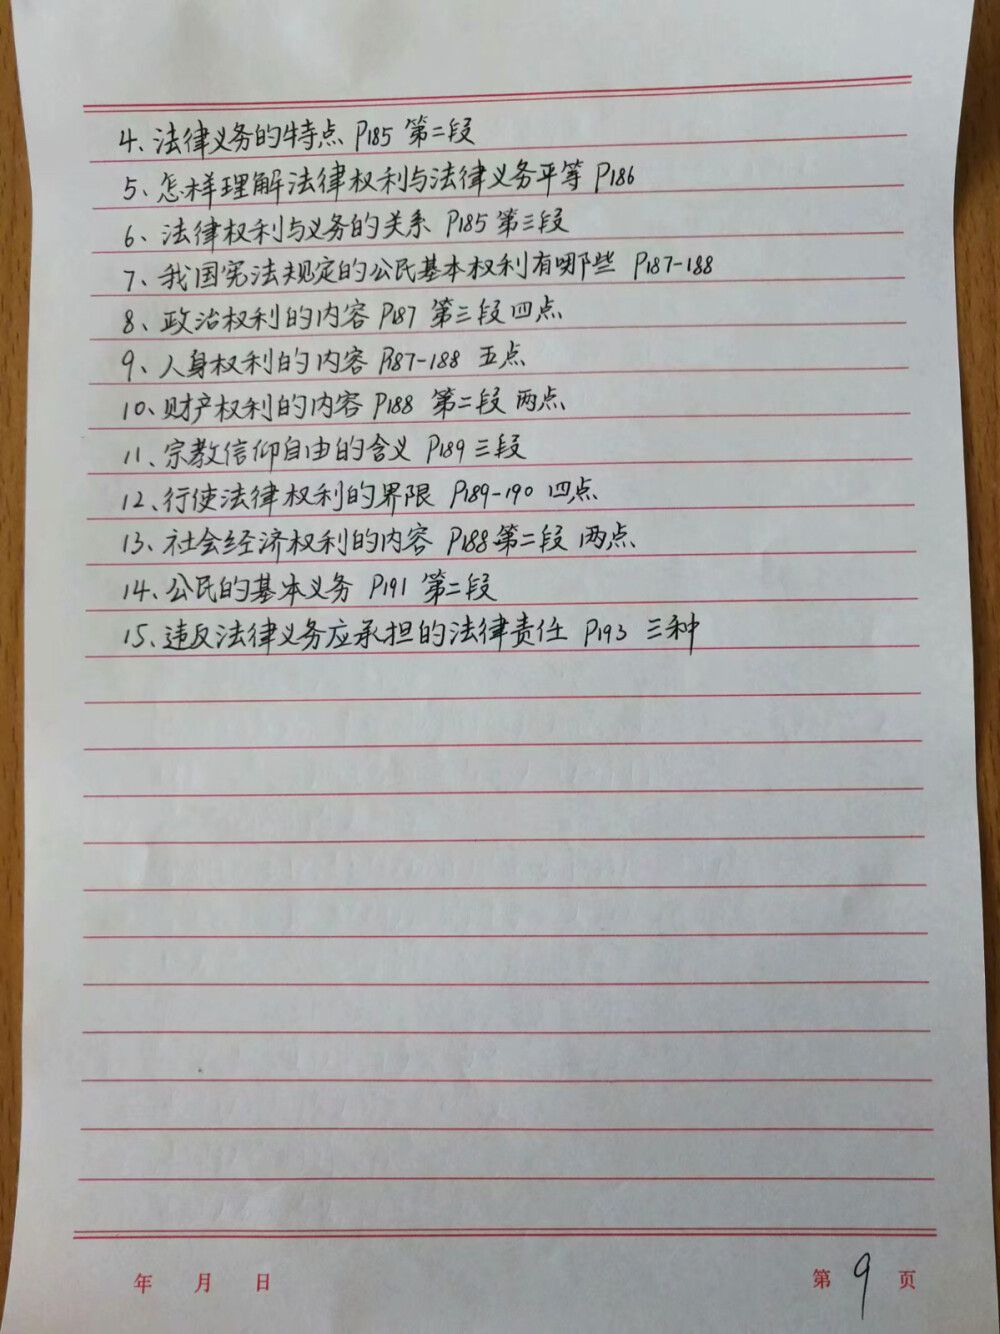 4、法律义务的特点 P185 第二段
5、怎样理解法律权利与法律义务平等 P186
6、法律权利与义务的关系 P185 第三段
7、我国宪法规定的公民基本权利有哪些 P187-188
8、政治权利的内容 P187 第三段四点
9、人身权利的内容 P187-188 五点
10、财产权利的内容 P188 第二段 两点
11、宗教信仰自由的含义 P189 三段
12、行使法律权利的界限 P189-190 四点
13、社会经济权利的内容 P188第二段 两点
14、公民的基本义务 P191 第二段
15、违反法律义务应承担的法律责任 P193 三种
年 月 日 第 9 页